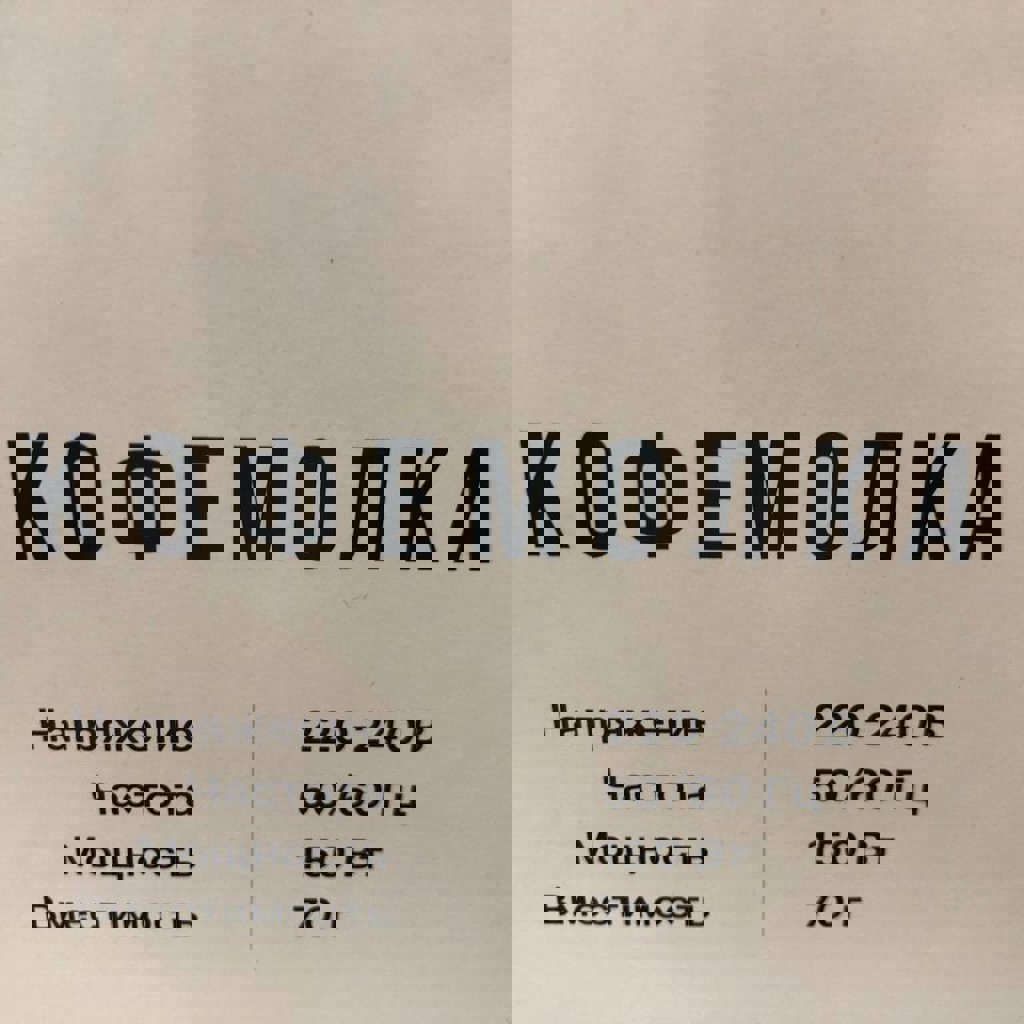 КОФЕМОЛКА КОФЕМОЛКА
Напряжение 220-240В Напряжение 220-240В
Частота 50/60 Гц Частота 50/60 Гц
Мощность 150 Вт Мощность 150 Вт
Вместимость 70 г Вместимость 70 г